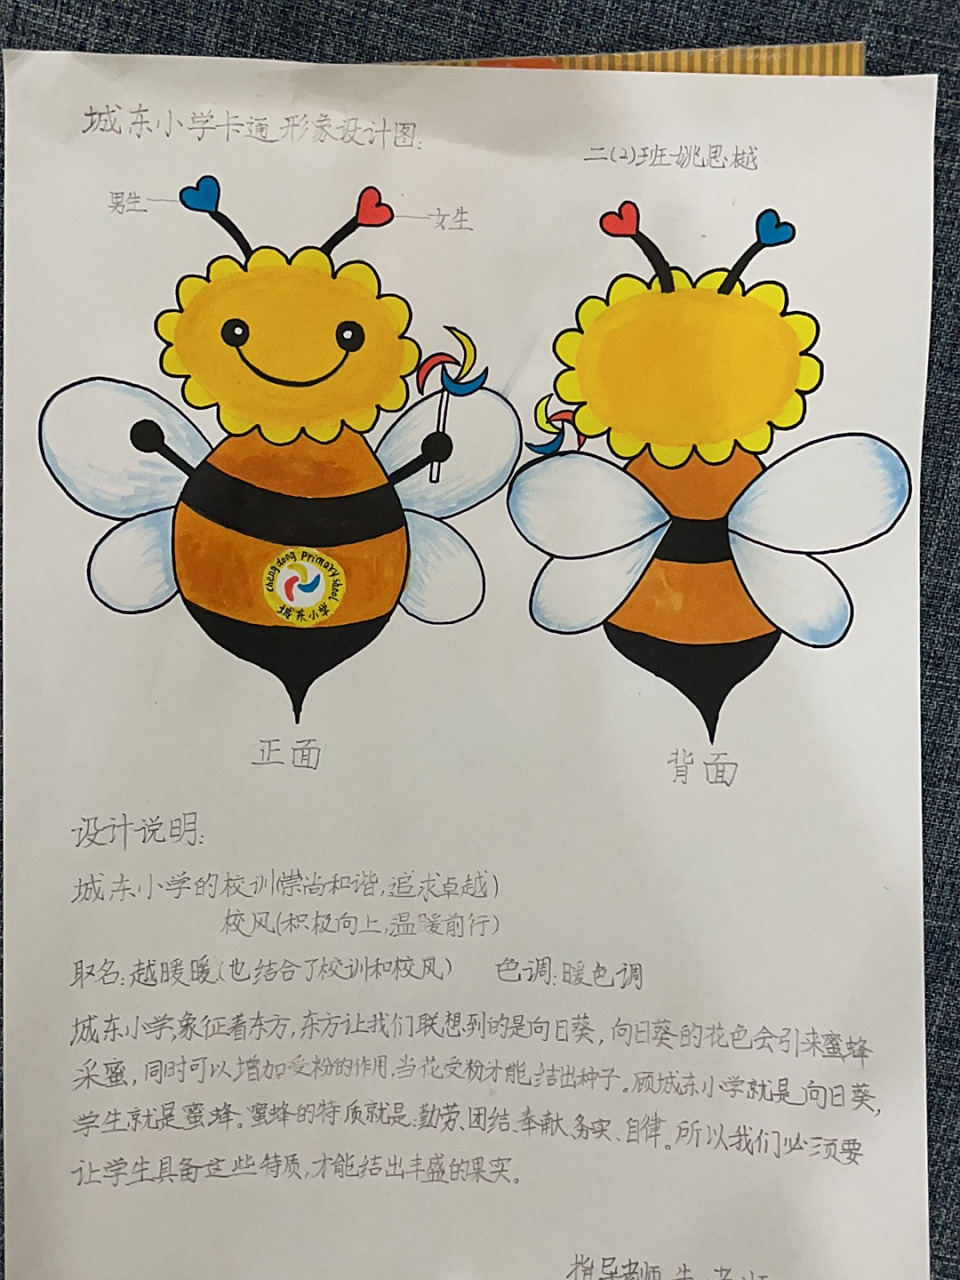 城东小学卡通形象设计图:
二(2)班姚思樾
男生
女生
chengdong Primary shool
城东小学
正面
背面
设计说明:
城东小学的校训(崇尚和谐,追求卓越)
校风(积极向上,温暖前行)
取名:越暖暖(也结合了校训和校风) 色调:暖色调
城东小学,象征着东方,东方让我们联想到的是向日葵,向日葵的花色会引来蜜蜂
采蜜,同时可以增加受粉的作用,当花受粉才能结出种子。顾城东小学就是向日葵,
学生就是蜜蜂。蜜蜂的特质就是:勤劳、团结、奉献、务实、自律。所以我们必须要
让学生具备这些特质,才能结出丰盛的果实。
指导老师